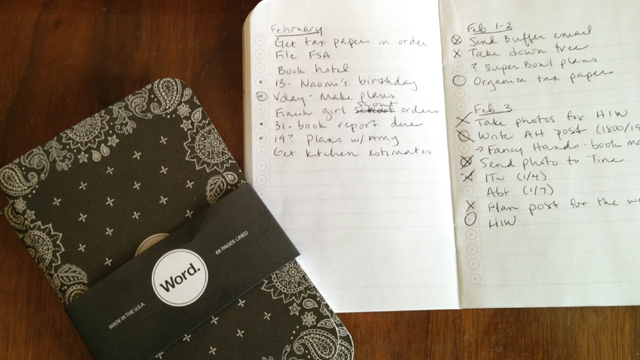 February
Get tax papers in order
File FSA
Book hotel
13- Naomi's birthday
Vday- Make plans
Finish girl scout orders
31- book report due
19? Plans w/Amy
Get kitchen estimates
Feb 1-2
Send Buffer email
Take down tree
? Super Bowl plans
Organize tax papers
Feb 3
Take photos for HIW
Write AH post (1500/19
→ Fancy Hands- book
Send photo to Tine
ITW (1/4)
Abt (1/7)
Plan post for the
HIW
Word.
48 PAGES LINED
MADE IN THE U.S.A.